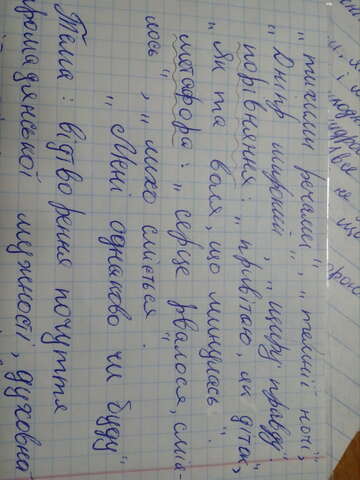 "тихими речами", "темнії ночі",
"Дніпр широкий", "щиру правду".
порівняння: "привітаю, як діток",
"Як та воля, що минулась".
метафора: "серце рвалося, смія-
лось", "лихо сміється".
"Мені однаково чи буду"
Тема: відтворення почуття
громадянської мужності, духовна-